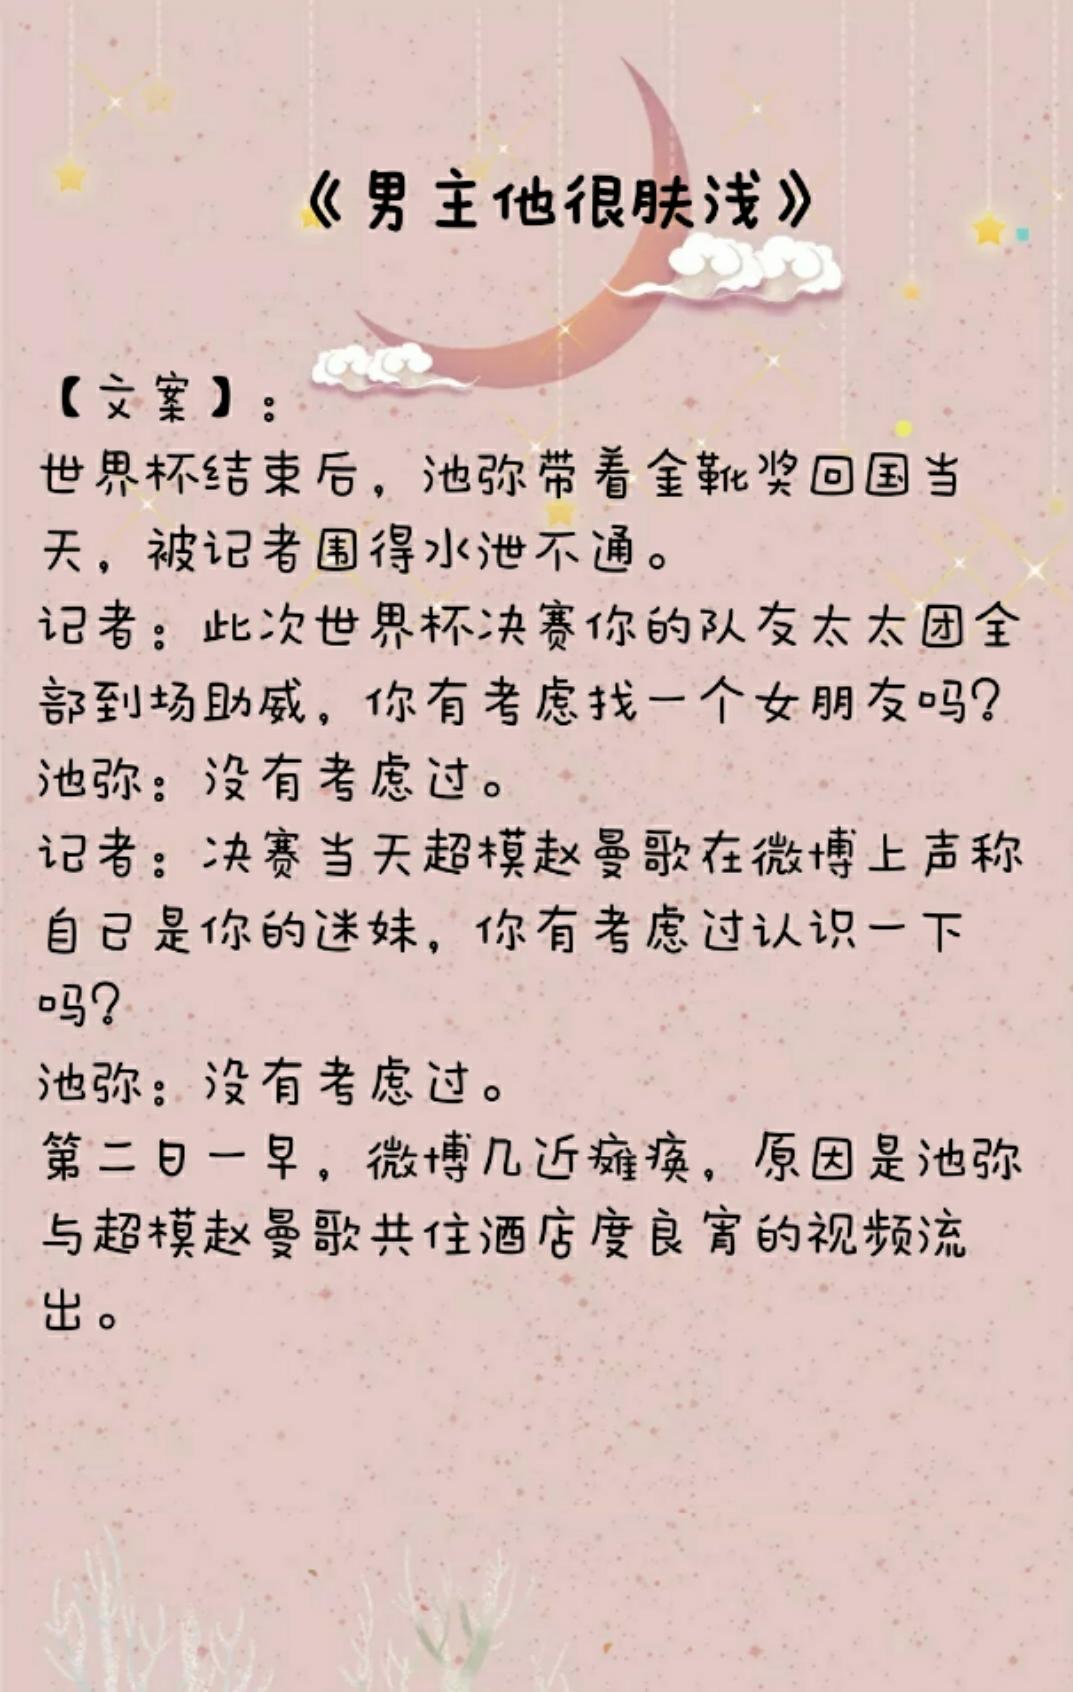 《男主他很肤浅》
【文案】：
世界杯结束后，池弥带着金靴奖回国当
天，被记者围得水泄不通。
记者：此次世界杯决赛你的队友太太团全
部到场助威，你有考虑找一个女朋友吗？
池弥：没有考虑过。
记者：决赛当天超模赵曼歌在微博上声称
自己是你的迷妹，你有考虑过认识一下
吗？
池弥：没有考虑过。
第二日一早，微博几近瘫痪，原因是池弥
与超模赵曼歌共住酒店度良宵的视频流
出。